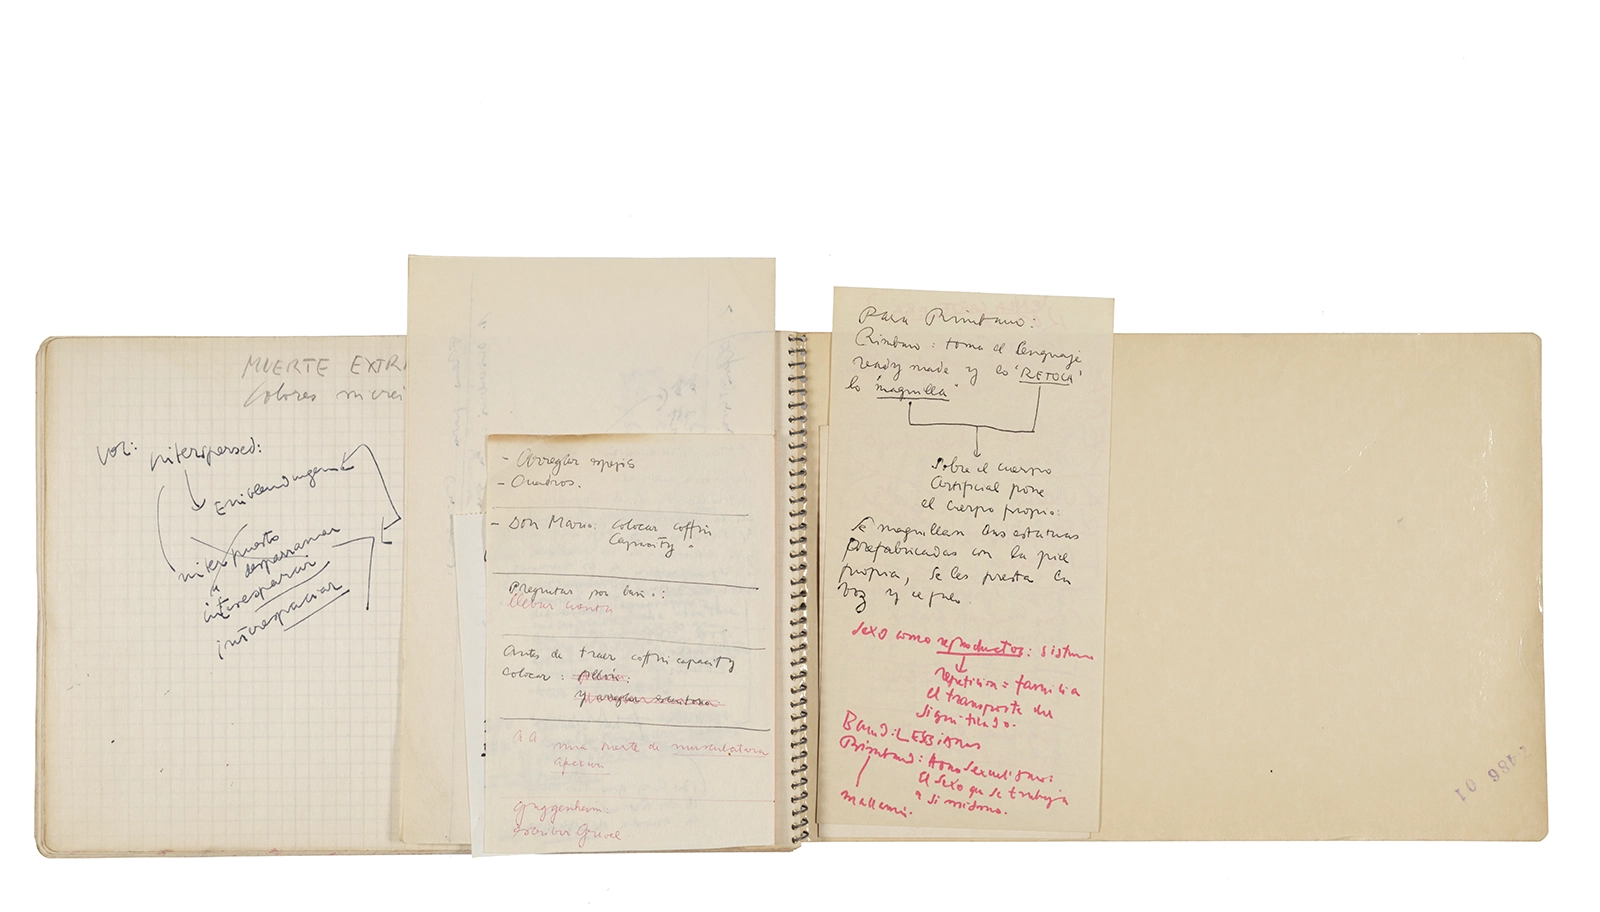 MUERTE EXTR
Colores
Vol: interspersed:
interpuesto
a desparramar
interesparcir
interespaciar
- Arreglar espejos
- Cuadros.
- Don Mario: colocar coffin
Capacity.
Preguntas por
llevar
Antes de traer coffin capacity
colocar:
y arreglar
una suerte de musculatura
Guggenheim:
escribir
Para Rimbaud:
Rimbaud: toma el lenguaje
ready made y lo "RETOCA"
lo "maquilla"
Sobre el cuerpo
artificial pone
el cuerpo propio:
Se maquillan las estatuas
prefabricadas con la piel
propia, se les presta la
voz y el pelo.
Sexo como reproductor: sistema
repetición: familia
el transporte del
significado.
Baud: LESBianas
Rimbaud: Homosexualismo:
el sexo que se trabaja
a si mismo.
Mallarmé.
2486 01